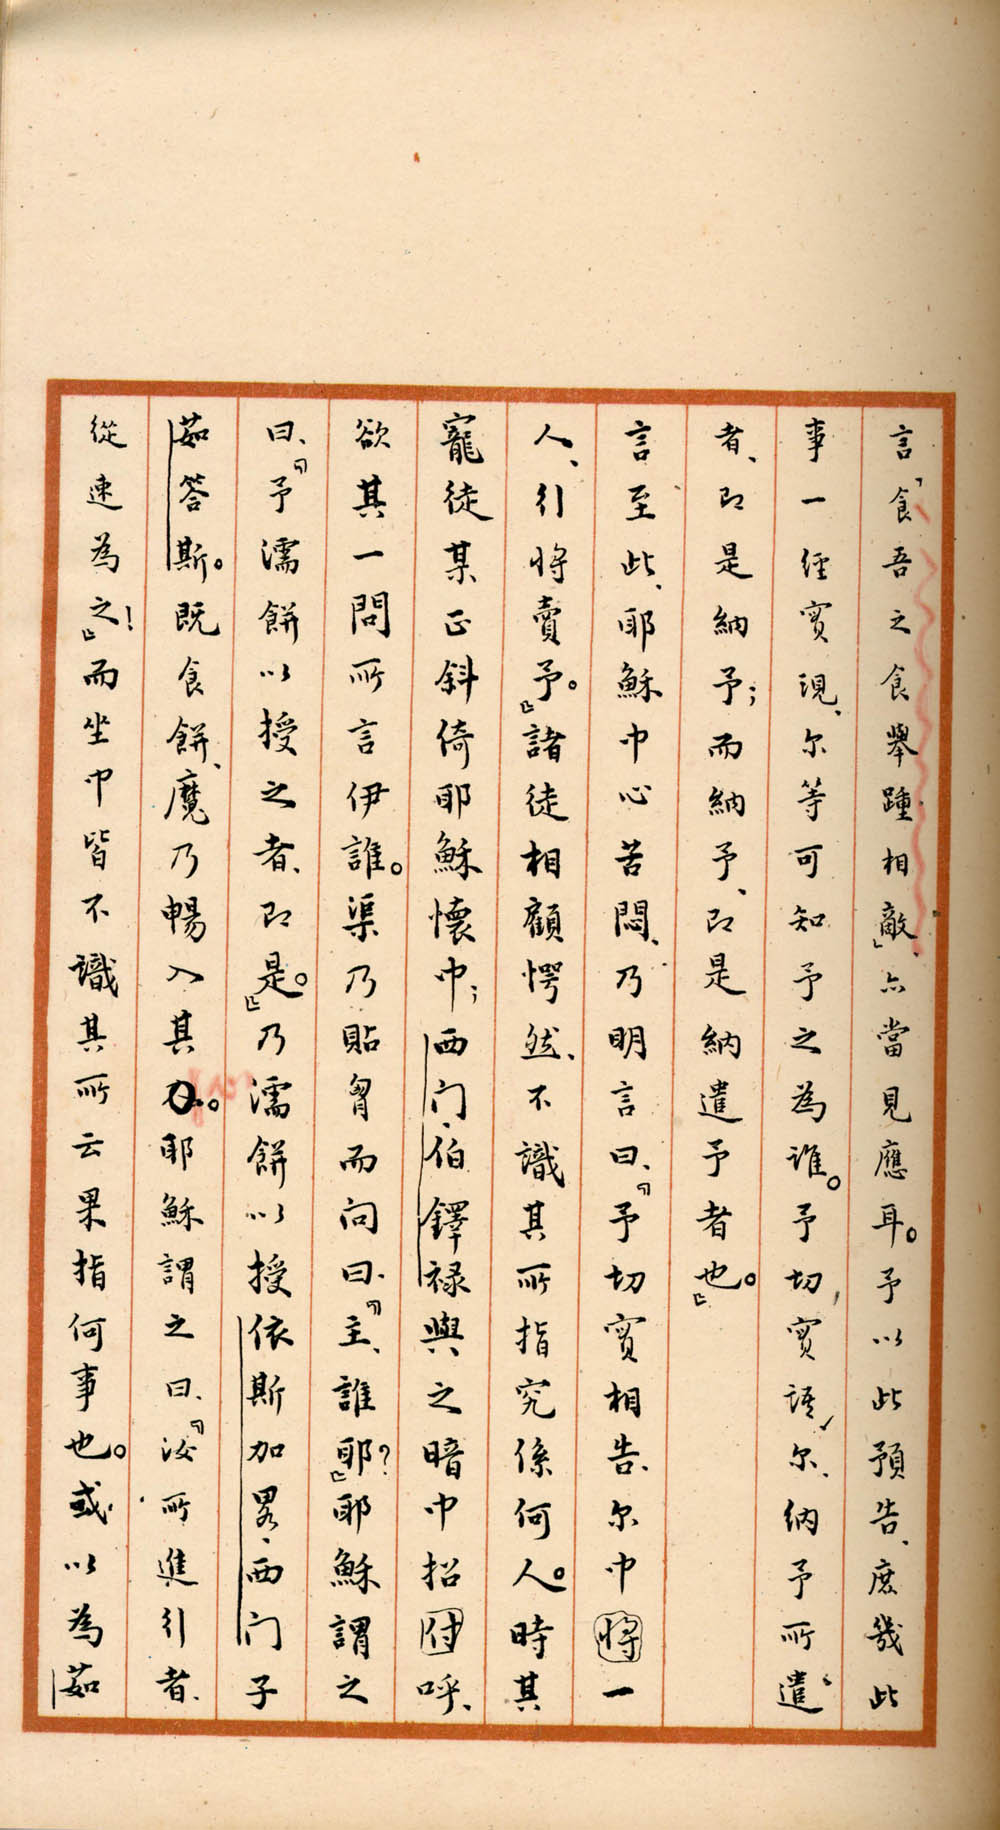 言「食吾之食舉踵相敵」、亦當見應耳。予以此預告、庶幾此
事一經實現、尔等可知予之為誰。予切實語尔、納予所遣
者、即是納予；而納予、即是納遣予者也。』
言至此、耶穌中心苦悶、乃明言曰、『予切實相告、尔中將一
人、引將賣予。』諸徒相顧愕然、不識其所指究係何人。時其
寵徒某正斜倚耶穌懷中；西门·伯鐸祿與之暗中招付呼、
欲其一問所言伊誰。渠乃貼胷而问曰、『主、誰耶？』耶穌謂之
曰、『予濡餅以授之者、即是。』乃濡餅以授依斯加畧·西门子
茹答斯。既食餅、魔乃暢入其心。耶穌謂之曰、『汝所進引者、
從速為之！』而坐中皆不識其所云果指何事也。或以為茹